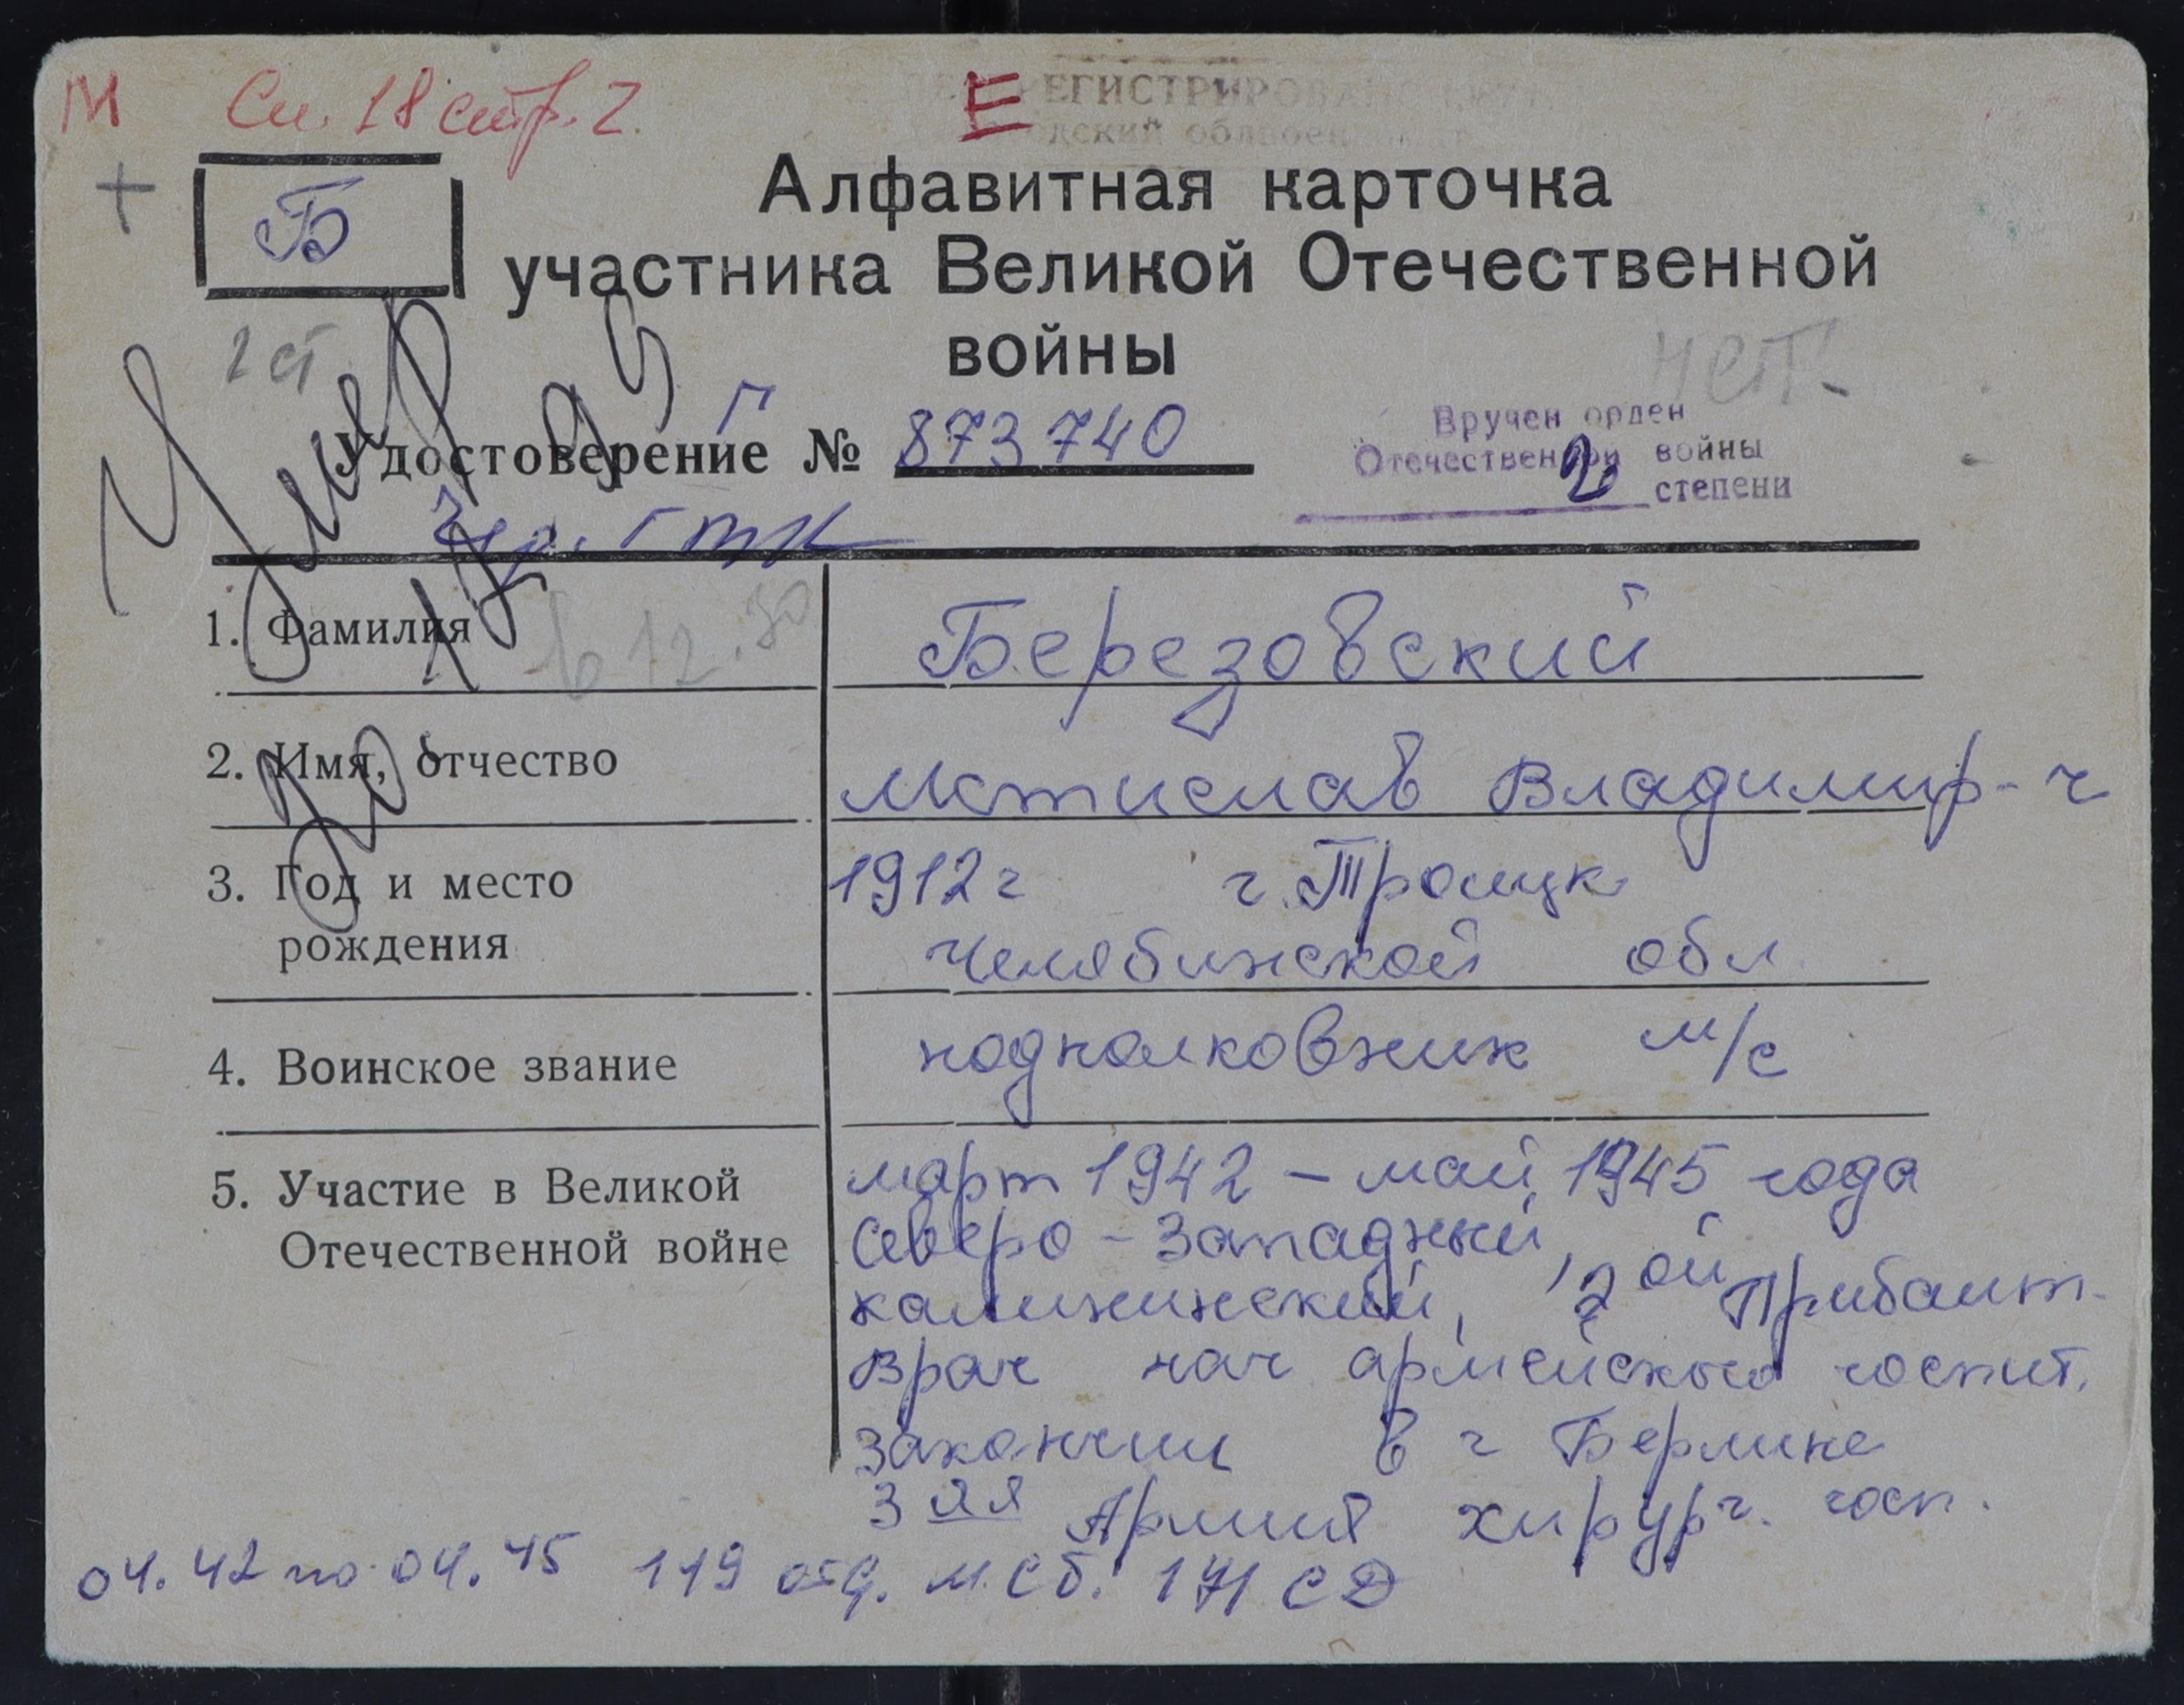 М Сп. 18 стр. 2. Е
РЕГИСТРИРОВАН
+ Б
Алфавитная карточка
участника Великой Отечественной
войны
2 ст
Умер
нет
Г
Удостоверение № 873740
Вручен орден
Отечественной войны
2 степени
12.90
1. Фамилия Березовский
2. Имя, отчество Мстислав Владимир-ч
3. Год и место 1912г г. Троицк
рождения Челябинской обл
4. Воинское звание подполковник м/с
5. Участие в Великой март 1942 – май 1945 года
Отечественной войне Северо-Западный,
Калининский, 2ой Прибалт.
врач нач армейского госпит.
закончил в г Берлине
3 ая Армия хирург. госп.
04.42 по 04.45 119 отд. м.с.б. 171 СД